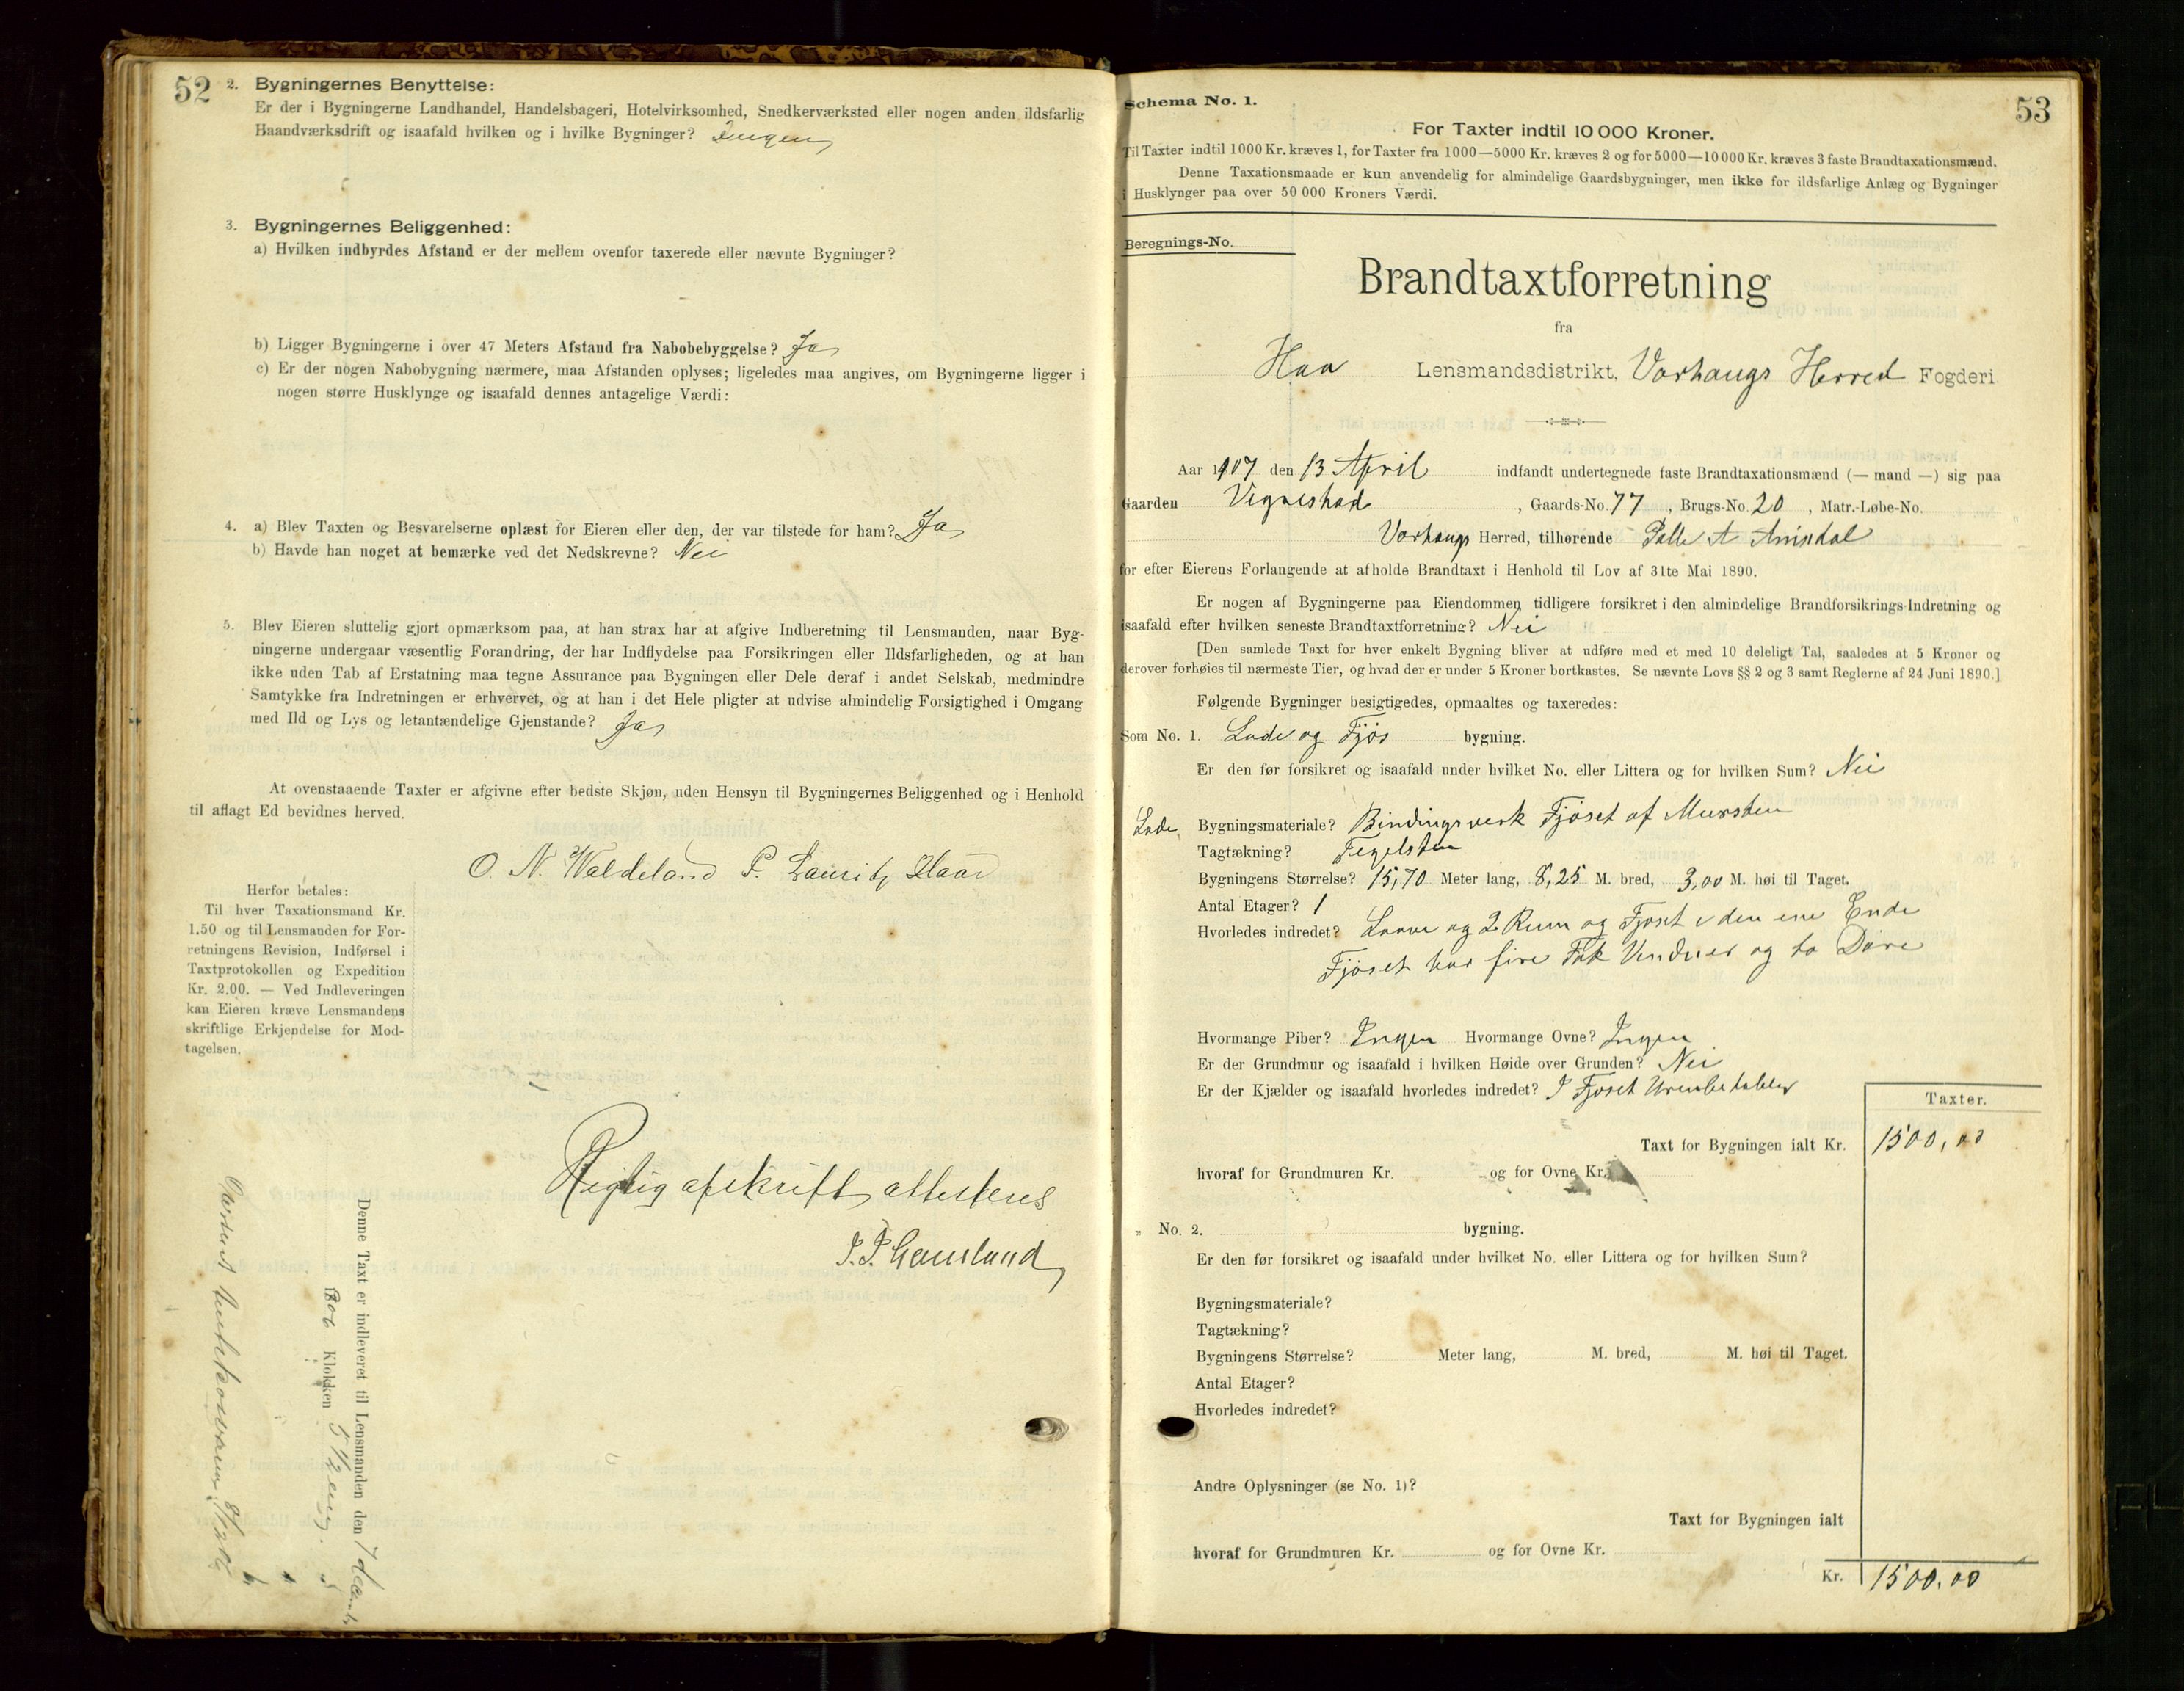 52
2. Bygningernes Benyttelse:
Er der i Bygningerne Landhandel, Handelsbageri, Hotelvirksomhed, Snedkerværksted eller nogen anden ildsfarlig
Haandværksdrift og isaafald hvilken og i hvilke Bygninger? Ingen
3. Bygningernes Beliggenhed:
a) Hvilken indbyrdes Afstand er der mellem ovenfor taxerede eller nævnte Bygninger?
b) Ligger Bygningerne i over 47 Meters Afstand fra Nabobebyggelse? Ja
c) Er der nogen Nabobygning nærmere, maa Afstanden oplyses; ligeledes maa angives, om Bygningerne ligger i
nogen større Husklynge og isaafald dennes antagelige Værdi:
4. a) Blev Taxten og Besvarelserne oplæst for Eieren eller den, der var tilstede for ham? Ja
b) Havde han noget at bemærke ved det Nedskrevne? Nei
5. Blev Eieren sluttelig gjort opmærksom paa, at han strax har at afgive Indberetning til Lensmanden, naar Byg-
ningerne undergaar væsentlig Forandring, der har Indflydelse paa Forsikringen eller Ildsfarligheden, og at han
ikke uden Tab af Erstatning maa tegne Assurance paa Bygningen eller Dele deraf i andet Selskab, medmindre
Samtykke fra Indretningen er erhvervet, og at han i det Hele pligter at udvise almindelig Forsigtighed i Omgang
med Ild og Lys og letantændelige Gjenstande? Ja
At ovenstaaende Taxter er afgivne efter bedste Skjøn, uden Hensyn til Bygningernes Beliggenhed og i Henhold
til aflagt Ed bevidnes herved.
O. N. Waldeland P. Lauritz Haar
Herfor betales:
Til hver Taxationsmand Kr.
1.50 og til Lensmanden for For-
retningens Revision, Indførsel i
Taxtprotokollen og Expedition
Kr. 2.00. — Ved Indleveringen
kan Eieren kræve Lensmandens
skriftlige Erkjendelse for Mod-
tagelsen.
Rigtig afskrift attesteres
Denne Taxt er indleveret til Lensmanden den 7
1906 Klokken 5 1/2
53
Schema No. 1.
For Taxter indtil 10 000 Kroner.
Til Taxter indtil 1000 Kr. kræves 1, for Taxter fra 1000—5000 Kr. kræves 2 og for 5000—10 000 Kr. kræves 3 faste Brandtaxationsmænd.
Denne Taxationsmaade er kun anvendelig for almindelige Gaardsbygninger, men ikke for ildsfarlige Anlæg og Bygninger
i Husklynger paa over 50 000 Kroners Værdi.
Beregnings-No.
Brandtaxtforretning
fra
Haa Lensmandsdistrikt, Varhaugs Herred Fogderi
Aar 1907 den 13 April indfandt undertegnede faste Brandtaxationsmænd (— mand —) sig paa
Gaarden Vignestad, Gaards-No. 77, Brugs-No. 20, Matr.-Løbe-No.
Varhaugs Herred, tilhørende Palle A Amdal
for efter Eierens Forlangende at afholde Brandtaxt i Henhold til Lov af 31te Mai 1890.
Er nogen af Bygningerne paa Eiendommen tidligere forsikret i den almindelige Brandforsikrings-Indretning og
isaafald efter hvilken seneste Brandtaxtforretning? Nei
[Den samlede Taxt for hver enkelt Bygning bliver at udføre med et med 10 deleligt Tal, saaledes at 5 Kroner og
derover forhøies til nærmeste Tier, og hvad der er under 5 Kroner bortkastes. Se nævnte Lovs §§ 2 og 3 samt Reglerne af 24 Juni 1890.]
Følgende Bygninger besigtigedes, opmaaltes og taxeredes:
Som No. 1. Lade og Fjøs bygning.
Er den før forsikret og isaafald under hvilket No. eller Littera og for hvilken Sum? Nei
Lade Bygningsmateriale? Bindingsverk Fjøset af Mursten
Tagtækning? Tegelsten
Bygningens Størrelse? 15,70 Meter lang, 8,25 M. bred, 3,00 M. høi til Taget.
Antal Etager? 1
Hvorledes indredet? Laave og 2 Rum og Fjøset i den ene Ende
Fjøset har fire Fak Vinduer og to Døre
Hvormange Piber? Ingen Hvormange Ovne? Ingen
Er der Grundmur og isaafald i hvilken Høide over Grunden? Nei
Er der Kjælder og isaafald hvorledes indredet? I Fjøset
Taxter.
Taxt for Bygningen ialt Kr. 1500,00
hvoraf for Grundmuren Kr. og for Ovne Kr.
„ No. 2. bygning.
Er den før forsikret og isaafald under hvilket No. eller Littera og for hvilken Sum?
Bygningsmateriale?
Tagtækning?
Bygningens Størrelse? Meter lang, M. bred, M. høi til Taget.
Antal Etager?
Hvorledes indredet?
Andre Oplysninger (se No. 1)?
Taxt for Bygningen ialt
hvoraf for Grundmuren Kr. og for Ovne Kr.
Kr. 1500.00